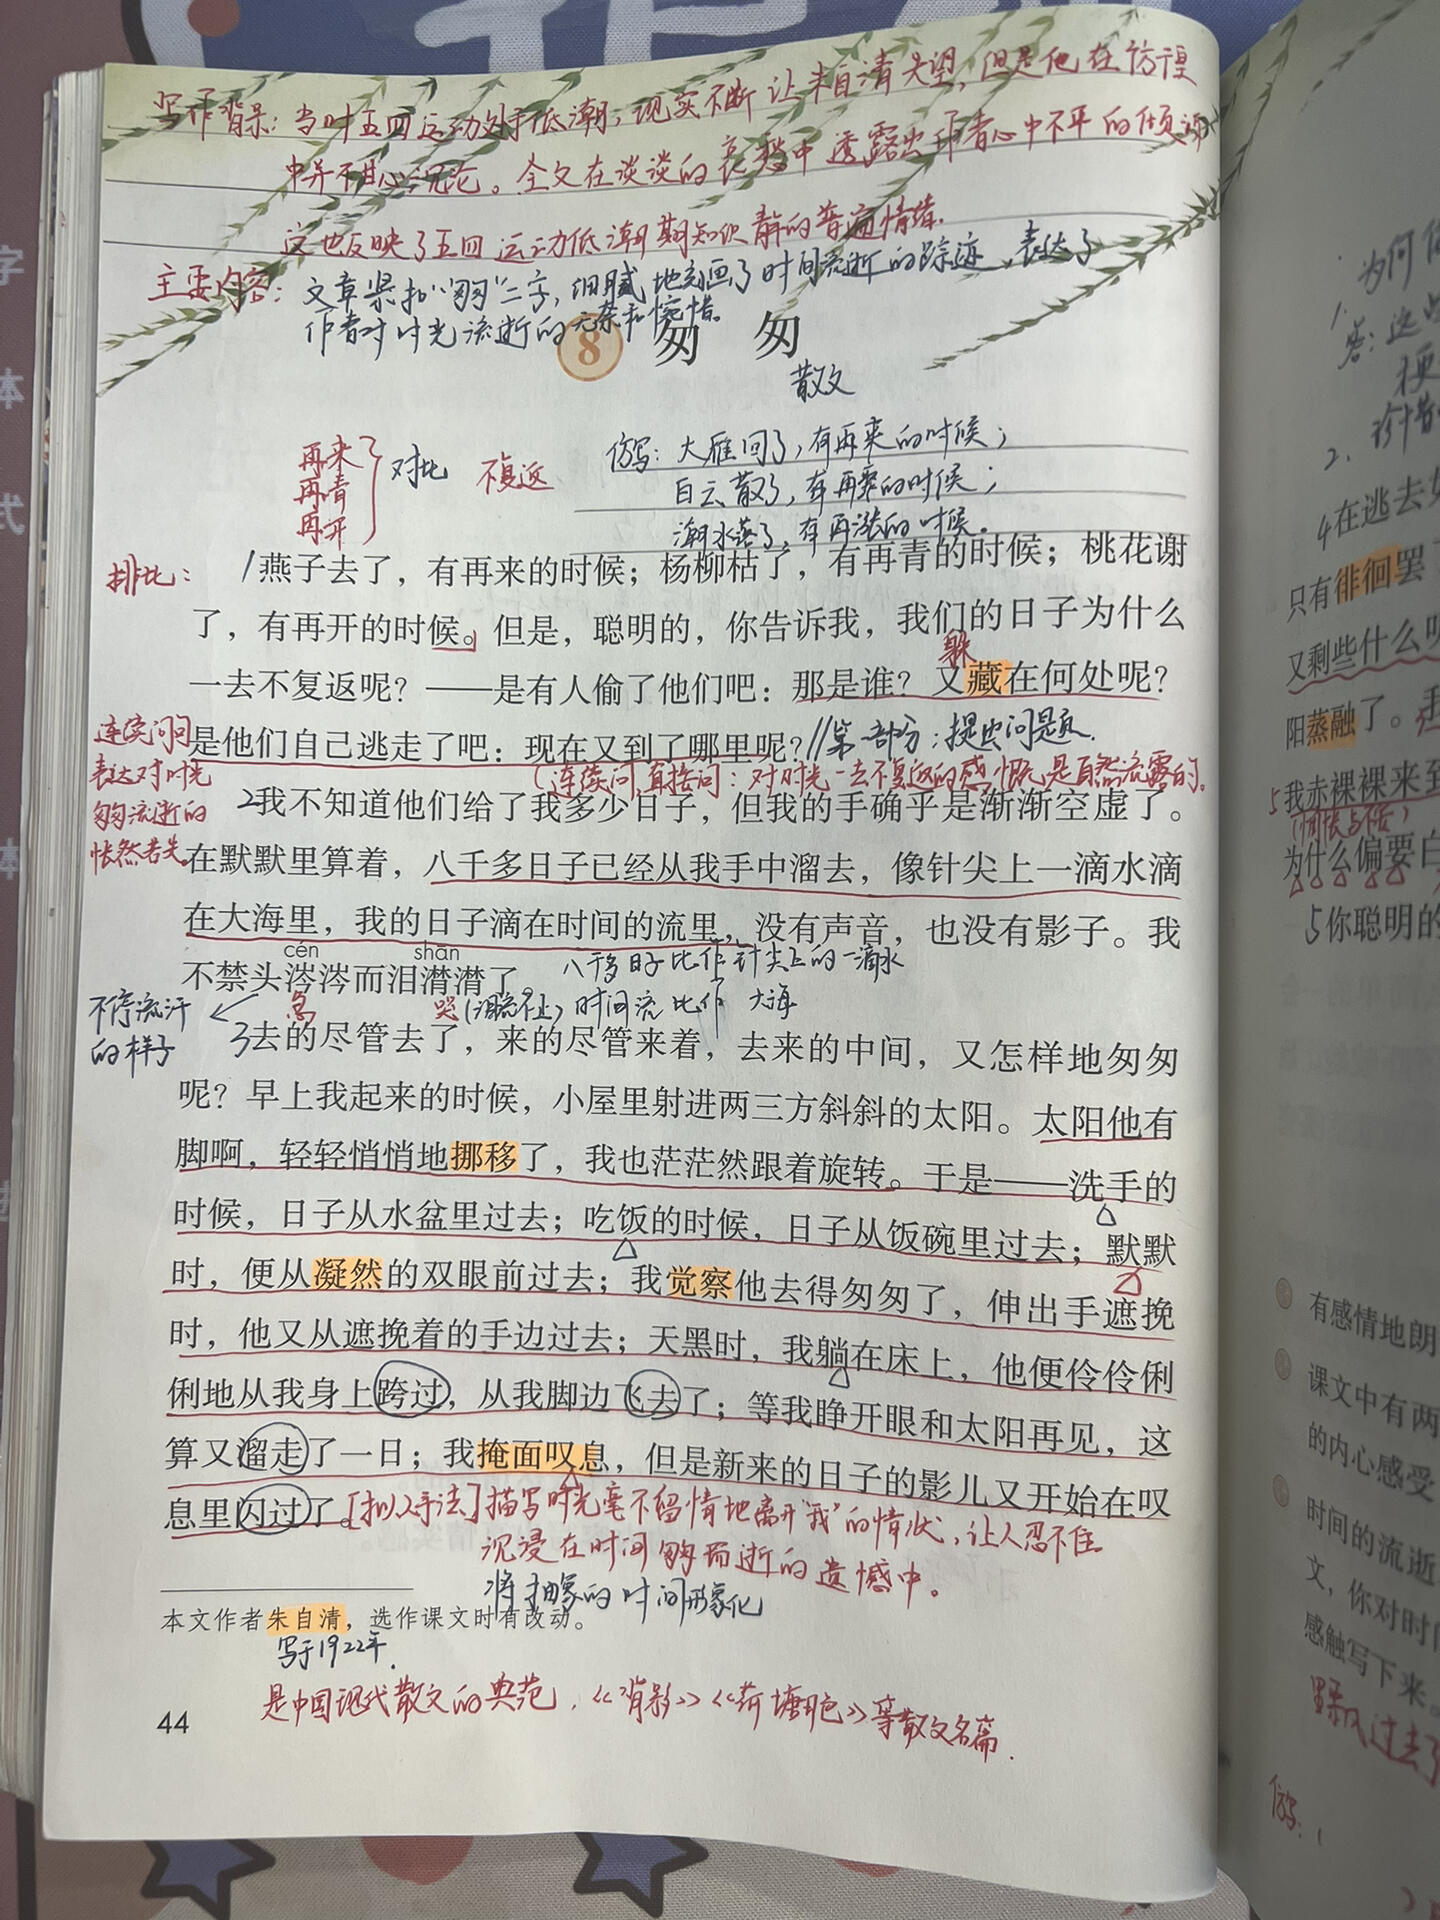 写作背景：当时五四运动处于低潮，现实不断让朱自清失望，但是他在彷徨
中并不甘心沉沦。全文在淡淡的哀愁中透露出作者心中不平的倾诉
这也反映了五四运动低潮期知识青年的普遍情绪.
主要内容：文章紧扣“匆匆”二字，细腻地刻画了时间流逝的踪迹，表达了
作者对时光流逝的无奈和惋惜。
8 匆匆
散文
再来
再青
再开
对比 不复返
仿写：大雁回了，有再来的时候；
白云散了，有再聚的时候；
潮水落了，有再涨的时候。
排比：
1燕子去了，有再来的时候；杨柳枯了，有再青的时候；桃花谢
了，有再开的时候。但是，聪明的，你告诉我，我们的日子为什么
躲
一去不复返呢？——是有人偷了他们吧：那是谁？又藏在何处呢？
是他们自己逃走了吧：现在又到了哪里呢？//第一部分：提出问题.
连续问句
表达对时光
匆匆流逝的
怅然若失。
(连续问，直接问：对时光一去不复返的感慨是自然流露的。
2我不知道他们给了我多少日子，但我的手确乎是渐渐空虚了。
在默默里算着，八千多日子已经从我手中溜去，像针尖上一滴水滴
在大海里，我的日子滴在时间的流里，没有声音，也没有影子。我
cén shān
不禁头涔涔而泪潸潸了。
八千多日子比作针尖上的一滴水
不停流汗
的样子
急 哭(泪流不止) 时间流 比作 大海
3去的尽管去了，来的尽管来着，去来的中间，又怎样地匆匆
呢？早上我起来的时候，小屋里射进两三方斜斜的太阳。太阳他有
脚啊，轻轻悄悄地挪移了，我也茫茫然跟着旋转。于是——洗手的
时候，日子从水盆里过去；吃饭的时候，日子从饭碗里过去；默默
时，便从凝然的双眼前过去；我觉察他去得匆匆了，伸出手遮挽
时，他又从遮挽着的手边过去；天黑时，我躺在床上，他便伶伶俐
俐地从我身上跨过，从我脚边飞去了；等我睁开眼和太阳再见，这
算又溜走了一日；我掩面叹息，但是新来的日子的影儿又开始在叹
息里闪过了。[拟人手法]描写时光毫不留情地离开“我”的情状，让人忍不住
沉浸在时间匆匆而逝的遗憾中。
将抽象的时间形象化
本文作者朱自清，选作课文时有改动。
写于1922年.
是中国现代散文的典范，《背影》《荷塘月色》等散文名篇.
44
1.
答：这
2、
4在逃去如
只有徘徊罢了
又剩些什么呢
阳蒸融了。
5我赤裸裸来到
为什么偏要白
5你聪明的
有感情地朗
课文中有两
的内心感受
时间的流逝
文，你对时间
感触写下来。
过去了
仿写：